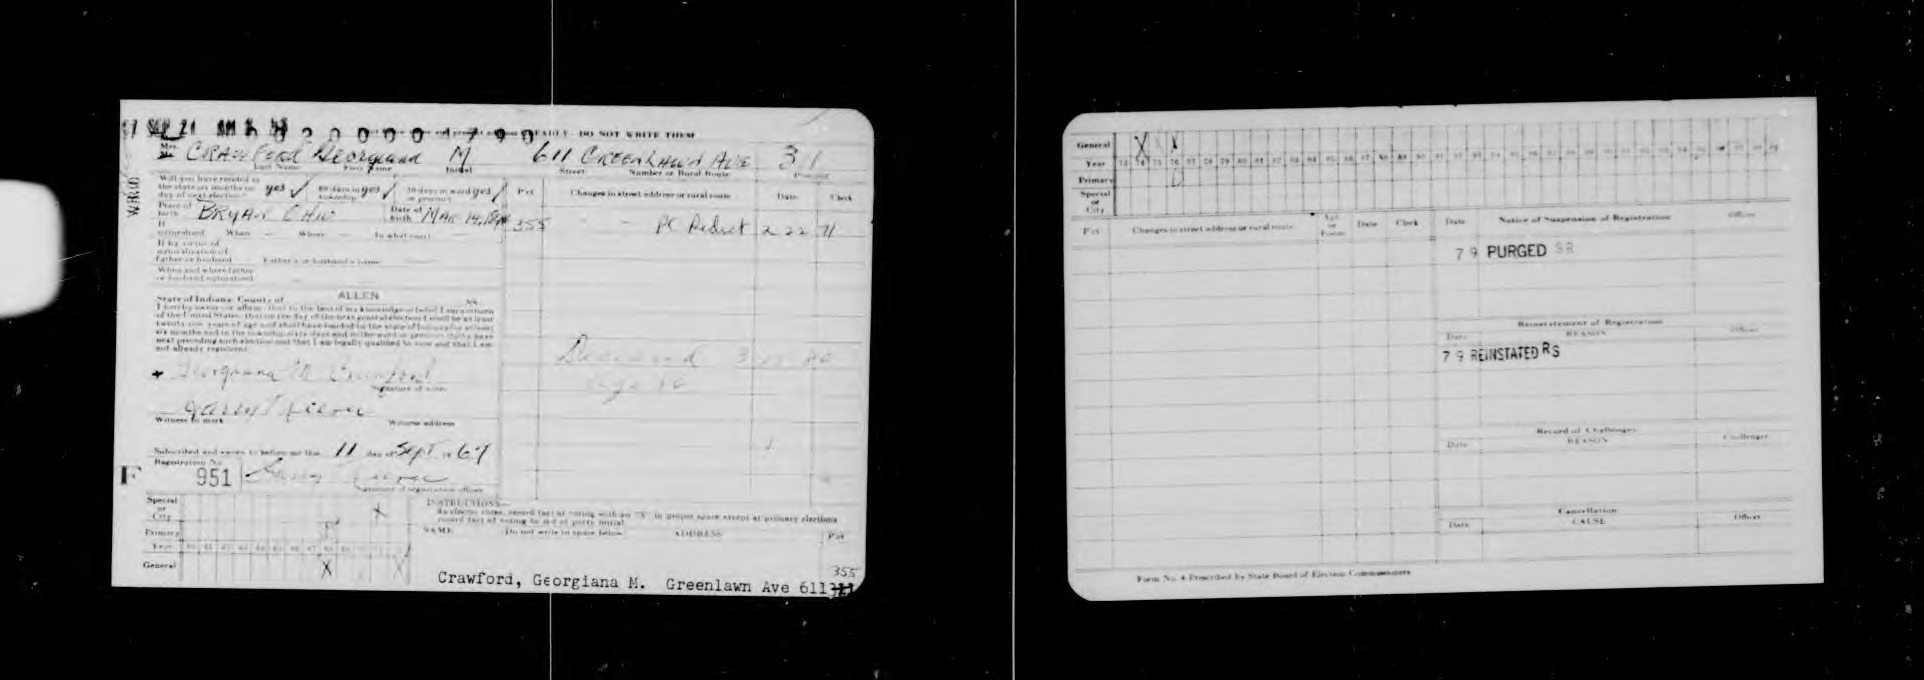 DO NOT WRITE THEM
Mrs. CRAWFORD Georgiana M 611 GREENLAWN AVE 31
Last Name First Name Initial Street Number or Rural Route Precinct
Will you have resided in
the state six months on yes 60 days in yes 30 days in ward yes
day of next election township or precinct
Pct Changes in street address or rural route Date Clerk
Place of birth BRYAN OHIO Date of birth MAR 14,
355 PC Redist 2 22 71
If naturalized When — Where — In what court —
If by virtue of
naturalization of
Father or husband Father's or husband's name
When and where father
or husband naturalized
State of Indiana, County of ALLEN SS.
I hereby swear (or affirm) that to the best of my knowledge or belief I am a citizen
of the United States; that on the day of the next general election I shall be at least
twenty-one years of age and shall have resided in the state of Indiana for at least
six months and in the township sixty days and in the ward or precinct thirty days
next preceding such election and that I am legally qualified to vote and that I am
not already registered.
Deceased
Georgiana M Crawford
Signature of voter
Witness to mark Witness address
Subscribed and sworn to before me this 11 day of SEPT 19 67
Registration No.
F 951
Signature of registration officer
Special
or
City X
Primary
Year 60 61 62 63 64 65 66 67 68 69 70 71
General X
INSTRUCTIONS—
As elector votes, record fact of voting with an "X" in proper space except at primary elections
record fact of voting by use of party initial
NAME Do not write in space below ADDRESS Pct
355
Crawford, Georgiana M. Greenlawn Ave 611
General X X X
Year 73 74 75 76 77 78 79 80 81 82 83 84 85 86 87 88 89 90 91 92 93 94 95 96 97 98 99
Primary D
Special
or
City
Pct Changes in street address or rural route Apt or Room Date Clerk Date Notice of Suspension of Registration Officer
79 PURGED SR
Reinstatement of Registration
Date REASON Officer
79 REINSTATED RS
Record of Challenges
Date REASON Challenger
Cancellation
Date CAUSE Officer
Form No. 4 Prescribed by State Board of Election Commissioners